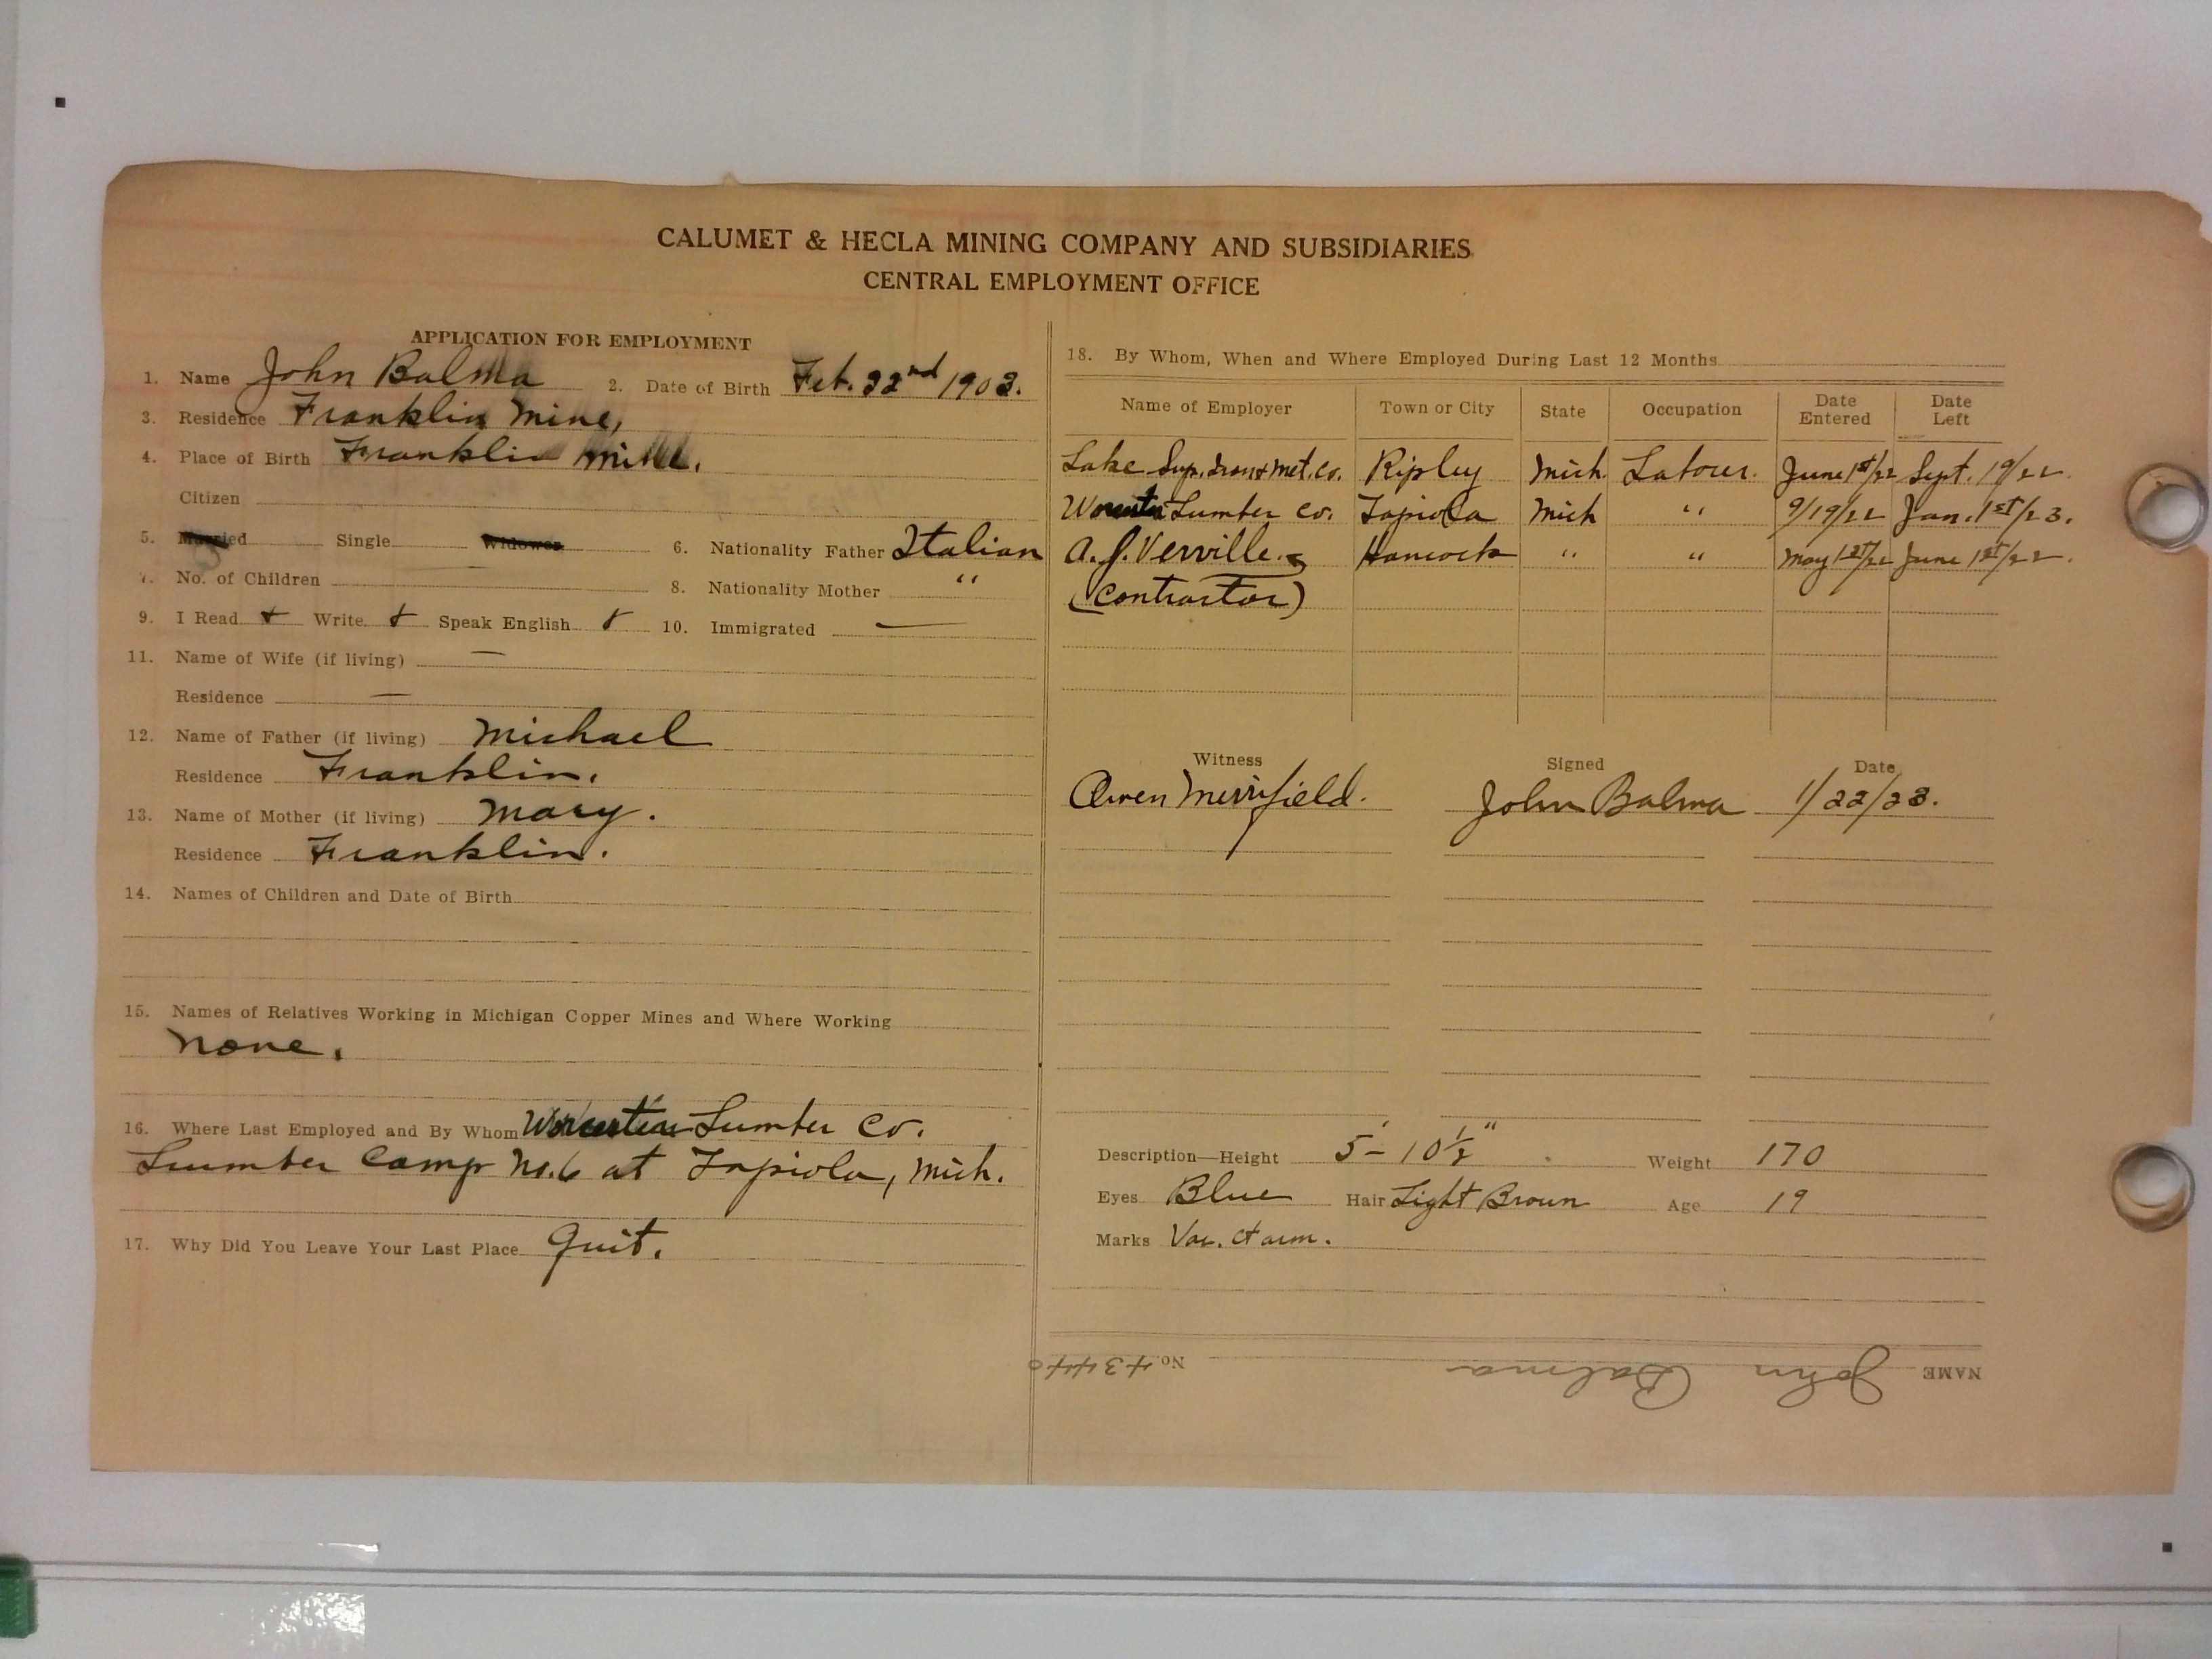 CALUMET & HECLA MINING COMPANY AND SUBSIDIARIES
CENTRAL EMPLOYMENT OFFICE
APPLICATION FOR EMPLOYMENT
1. Name John Balma 2. Date of Birth Feb. 22nd 1903.
3. Residence Franklin Mine,
4. Place of Birth Franklin Mine.
Citizen
5. Married Single Widower 6. Nationality Father Italian
7. No. of Children 8. Nationality Mother "
9. I Read Write Speak English 10. Immigrated —
11. Name of Wife (if living) —
Residence —
12. Name of Father (if living) Michael
Residence Franklin.
13. Name of Mother (if living) Mary.
Residence Franklin.
14. Names of Children and Date of Birth
15. Names of Relatives Working in Michigan Copper Mines and Where Working
None.
16. Where Last Employed and By Whom Worcester Lumber Co.
Lumber Camp No. 6 at Tapiola, Mich.
17. Why Did You Leave Your Last Place Quit.
18. By Whom, When and Where Employed During Last 12 Months
Name of Employer Town or City State Occupation Date Entered Date Left
Lake Sup. Iron & Met. Co. Ripley Mich. Labourer June 1st/22 Sept. 19/22.
Worcester Lumber Co. Tapiola Mich " 9/19/22 Jan. 1st/23.
A. J. Verville Hancock " " May 1st/22 June 1st/22.
(Contractor)
Witness Signed Date
Owen Merrifield. John Balma 1/22/23.
Description—Height 5'-10½" Weight 170
Eyes Blue Hair Light Brown Age 19
Marks Vac. arm.
NAME John Balma No. 43440